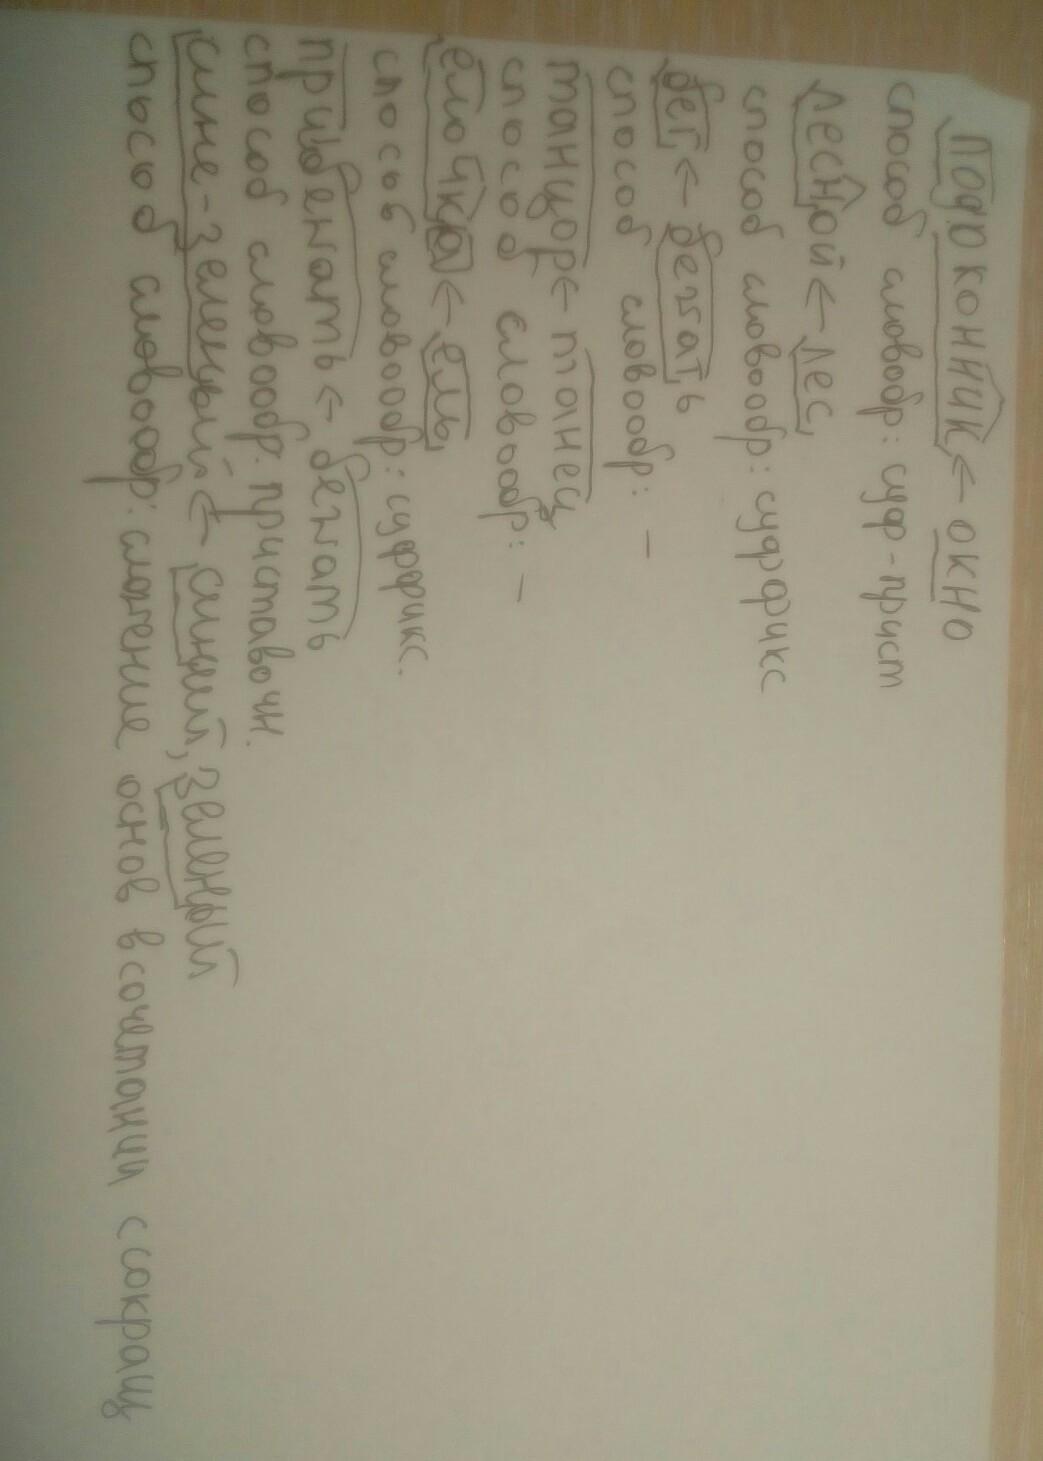 Подоконник ← окно
способ словобр: суф-прист
Лесной ← лес,
способ словообр: суффикс
бег ← бежать
способ словообр: –
танцор ← танец
способ словообр: –
ёлочка ← ель,
способ словообр: суффикс.
прибежать ← бежать
способ словообр. приставочн.
сине-зеленый ← синий, зеленый
способ словообр: сложение основ в сочетании с сокращ